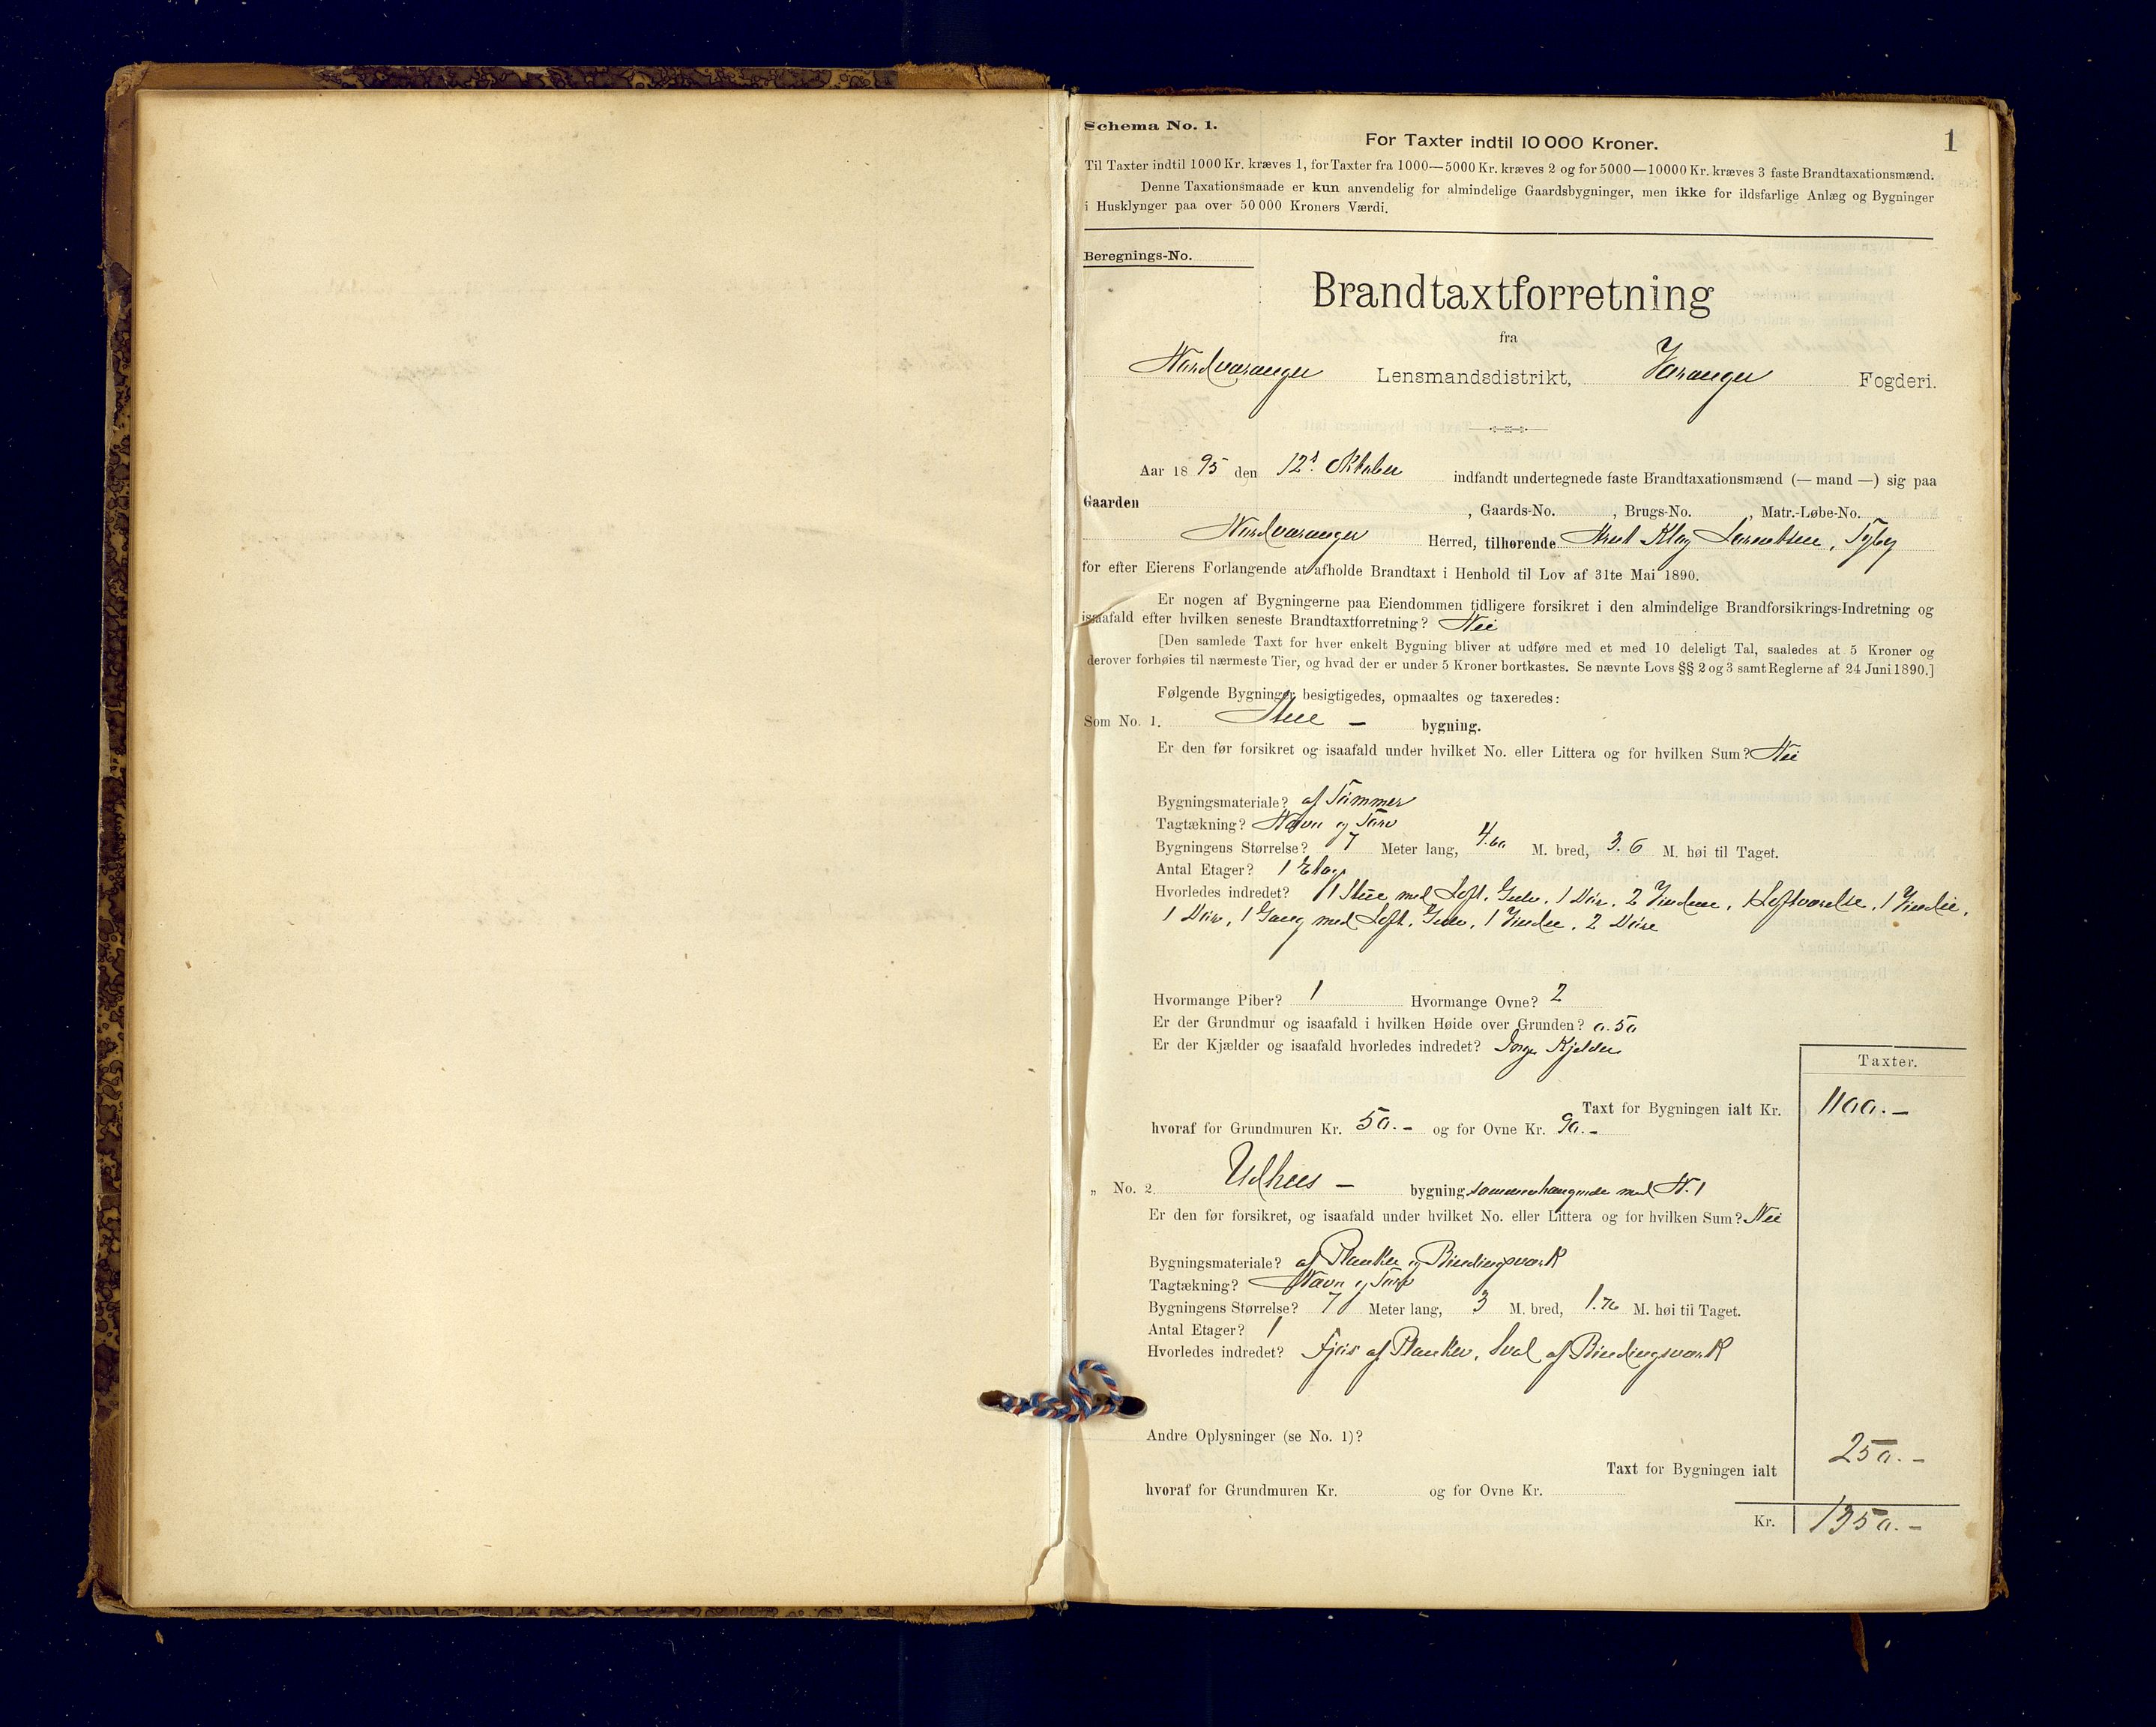 1
Schema No. 1.
For Taxter indtil 10 000 Kroner.
Til Taxter indtil 1000 Kr. kræves 1, for Taxter fra 1000—5000 Kr. kræves 2 og for 5000—10000 Kr. kræves 3 faste Brandtaxationsmænd.
Denne Taxationsmaade er kun anvendelig for almindelige Gaardsbygninger, men ikke for ildsfarlige Anlæg og Bygninger
i Husklynger paa over 50 000 Kroners Værdi.
Beregnings-No.
Brandtaxtforretning
fra
Nordvaranger Lensmandsdistrikt, Varanger Fogderi.
Aar 1895 den 12t Oktober indfandt undertegnede faste Brandtaxationsmænd (— mand —) sig paa
Gaarden , Gaards-No. , Brugs-No. , Matr.-Løbe-No.
Nordvaranger Herred, tilhørende Arnt Klog Larentsen, Tyby
for efter Eierens Forlangende at afholde Brandtaxt i Henhold til Lov af 31te Mai 1890.
Er nogen af Bygningerne paa Eiendommen tidligere forsikret i den almindelige Brandforsikrings-Indretning og
isaafald efter hvilken seneste Brandtaxtforretning? Nei
[Den samlede Taxt for hver enkelt Bygning bliver at udføre med et med 10 deleligt Tal, saaledes at 5 Kroner og
derover forhøies til nærmeste Tier, og hvad der er under 5 Kroner bortkastes. Se nævnte Lovs §§ 2 og 3 samt Reglerne af 24 Juni 1890.]
Følgende Bygninger besigtigedes, opmaaltes og taxeredes:
Som No. 1. Stue — bygning.
Er den før forsikret og isaafald under hvilket No. eller Littera og for hvilken Sum? Nei
Bygningsmateriale? af Tømmer
Tagtækning? Næver og Torv
Bygningens Størrelse? 7 Meter lang, 4.60 M. bred, 3.6 M. høi til Taget.
Antal Etager? 1 Etage
Hvorledes indredet? 1 Stue med Loft, Gulv, 1 Dør, 2 Vinduer, 1 Loftværelse, 1 Vindue,
1 Dør, 1 Gang med Loft, Gulv, 1 Vindue, 2 Døre
Hvormange Piber? 1 Hvormange Ovne? 2
Er der Grundmur og isaafald i hvilken Høide over Grunden? 0.50
Er der Kjælder og isaafald hvorledes indredet? Kjelder
Taxter.
Taxt for Bygningen ialt Kr. 1100.—
hvoraf for Grundmuren Kr. 50.— og for Ovne Kr. 90.—
„ No. 2. Udhus — bygning sammenhængende med N. 1
Er den før forsikret, og isaafald under hvilket No. eller Littera og for hvilken Sum? Nei
Bygningsmateriale? af Planker og Bindingsværk
Tagtækning? Næver og Torv
Bygningens Størrelse? 7 Meter lang, 3 M. bred, 1.70 M. høi til Taget.
Antal Etager? 1
Hvorledes indredet? Fjøs af Planker, Sval af Bindingsværk
Andre Oplysninger (se No. 1)?
Taxt for Bygningen ialt 250.—
hvoraf for Grundmuren Kr. og for Ovne Kr.
Kr. 1350.—